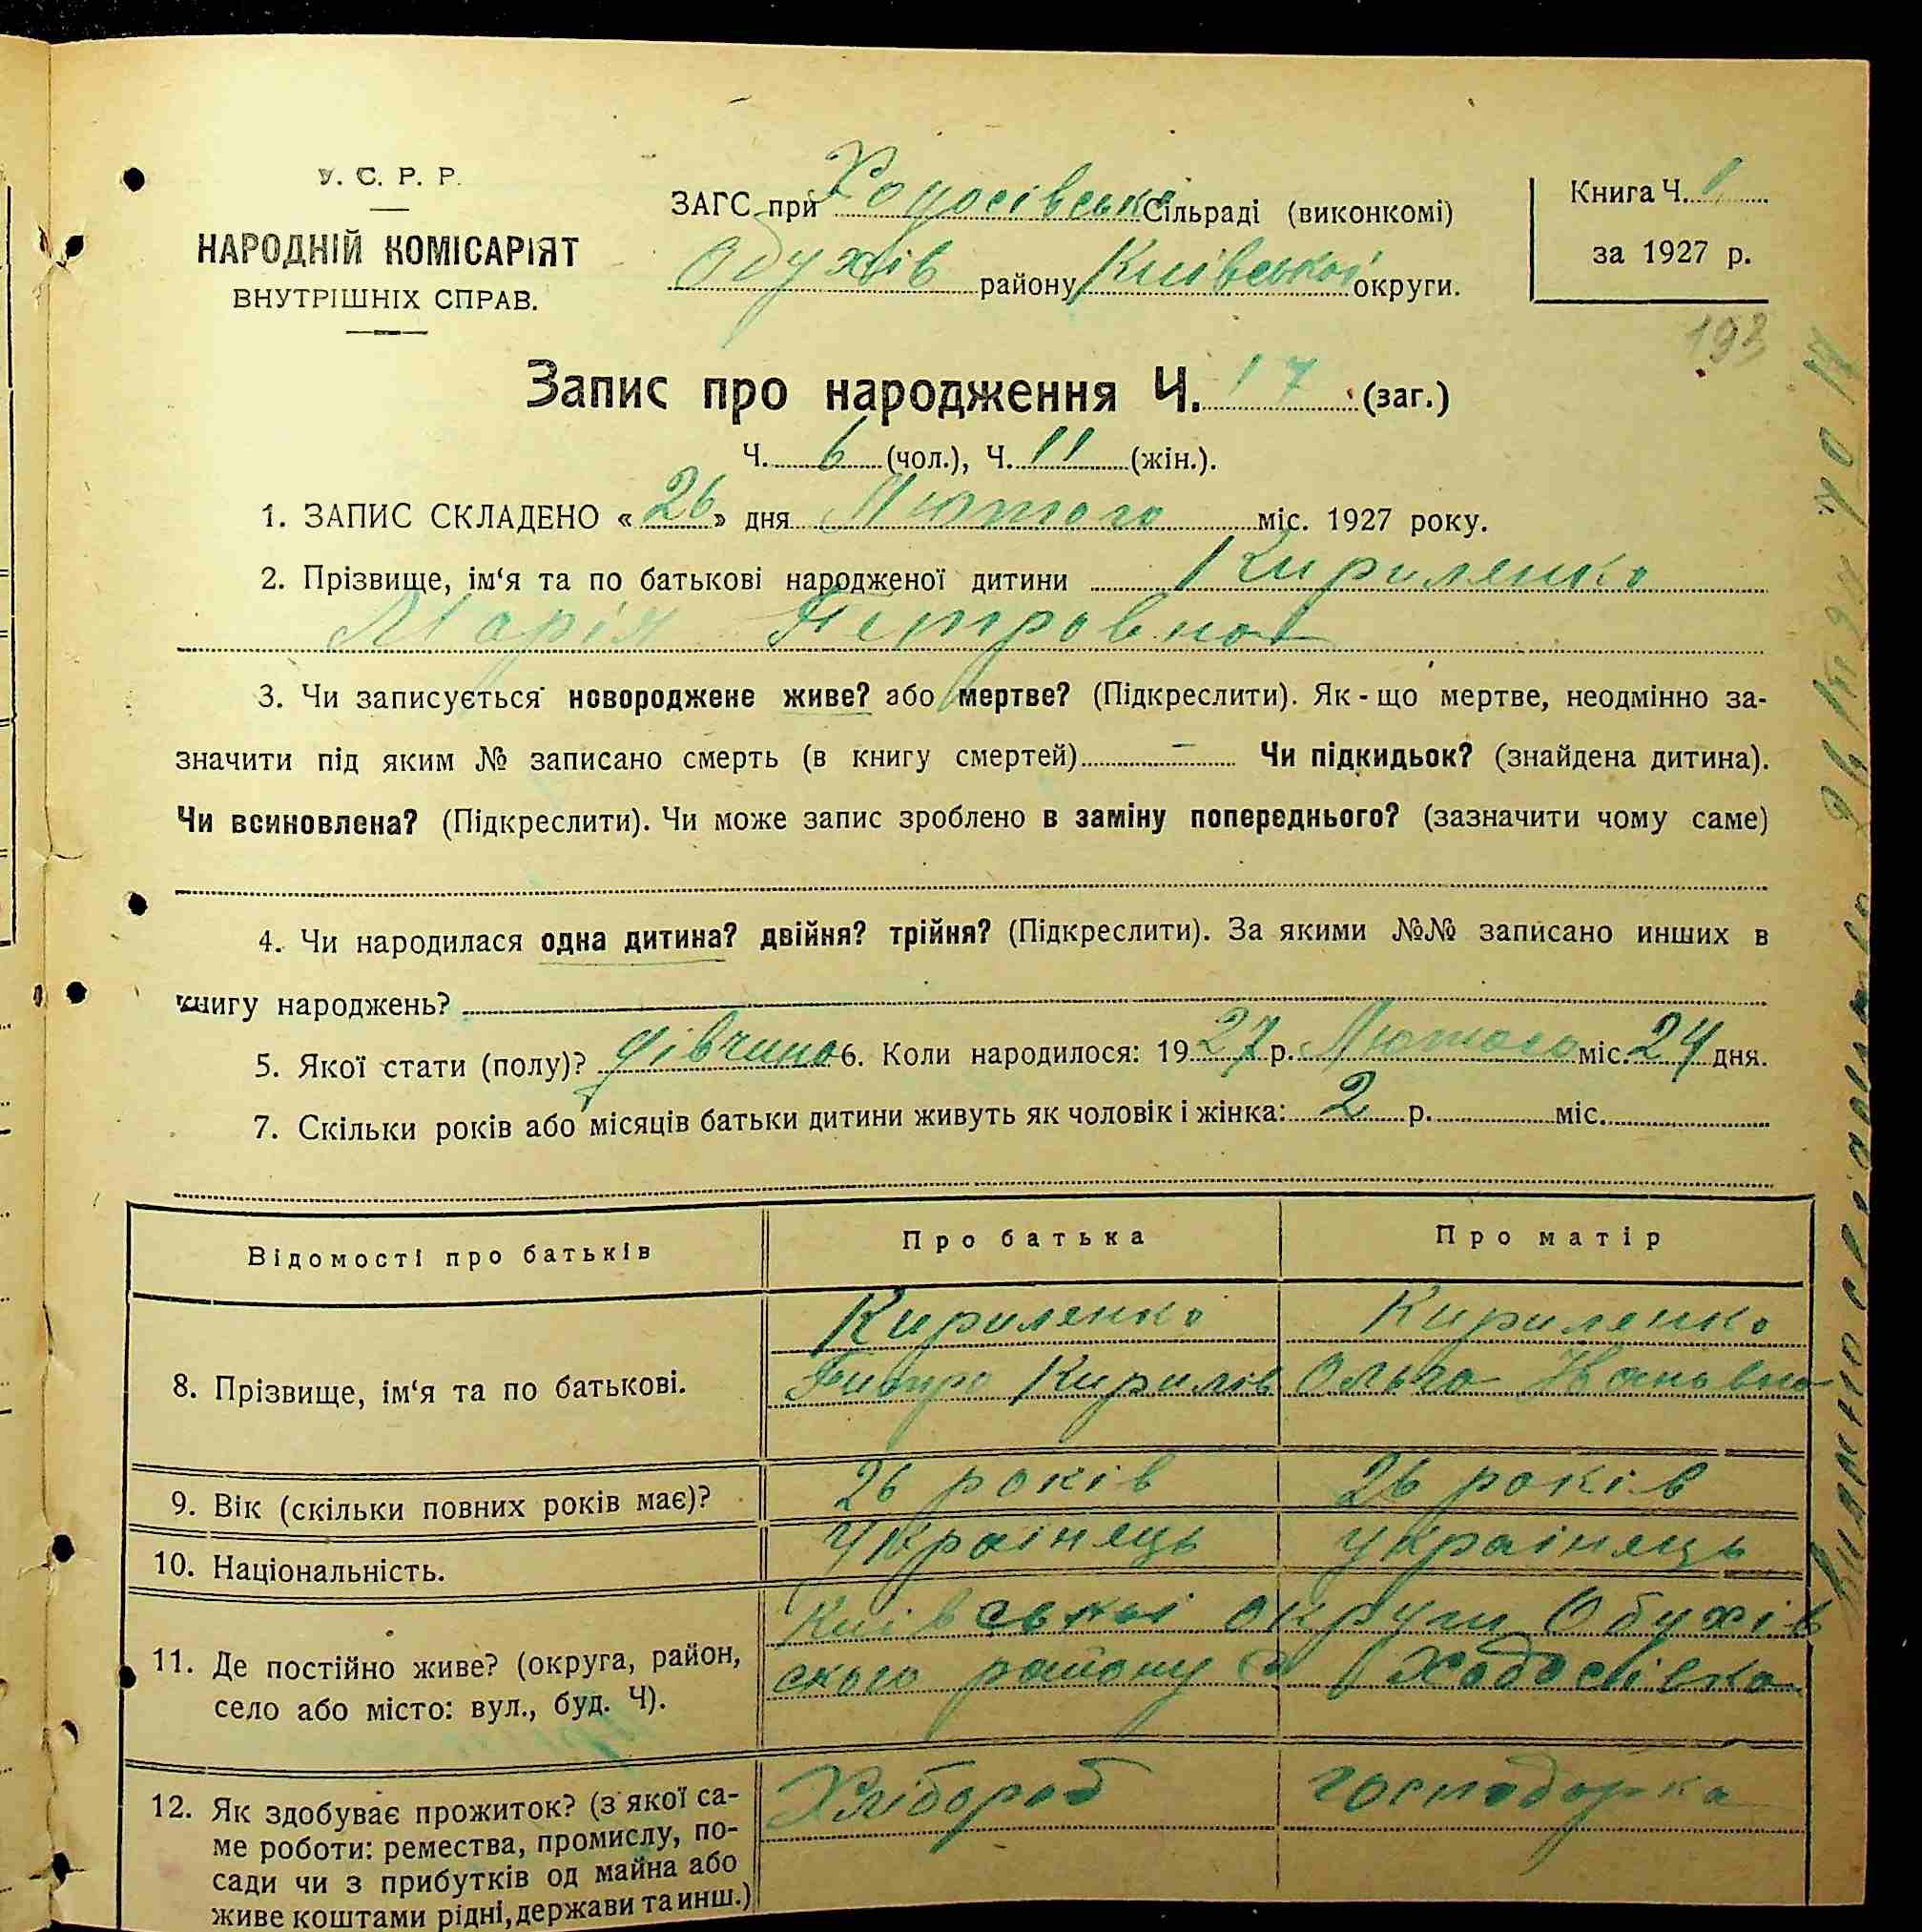 У. С. Р. Р.
НАРОДНІЙ КОМІСАРІЯТ
ВНУТРІШНІХ СПРАВ.
ЗАГС при Ходосівські Сільраді (виконкомі)
Обухів району Київської округи.
Книга Ч. 1
за 1927 р.
193
Запис про народження Ч. 17 (заг.)
Ч. 6 (чол.), Ч. 11 (жін.).
1. ЗАПИС СКЛАДЕНО « 26 » дня Лютого міс. 1927 року.
2. Прізвище, ім‘я та по батькові народженої дитини Кириленко
Марія Петровна
3. Чи записується новороджене живе? або мертве? (Підкреслити). Як-що мертве, неодмінно за-
значити під яким № записано смерть (в книгу смертей) — Чи підкидьок? (знайдена дитина).
Чи всиновлена? (Підкреслити). Чи може запис зроблено в заміну попереднього? (зазначити чому саме)
4. Чи народилася одна дитина? двійня? трійня? (Підкреслити). За якими №№ записано инших в
книгу народжень?
5. Якої стати (полу)? дівчина 6. Коли народилося: 1927 р. Лютого міс. 24 дня.
7. Скільки років або місяців батьки дитини живуть як чоловік і жінка: 2 р. міс.
Відомості про батьків Про батька Про матір
8. Прізвище, ім‘я та по батькові. Кириленко Кириленко
Петро Кирилів Ольга Івановна
9. Вік (скільки повних років має)? 26 років 26 років
10. Національність. Українець українець
11. Де постійно живе? (округа, район,
село або місто: вул., буд. Ч).
Київської округи Обухів
ского району с Ходосівка
12. Як здобуває прожиток? (з якої са-
ме роботи: ремества, промислу, по-
сади чи з прибутків од майна або
живе коштами рідні, держави та инш.)
Хлібороб господарка